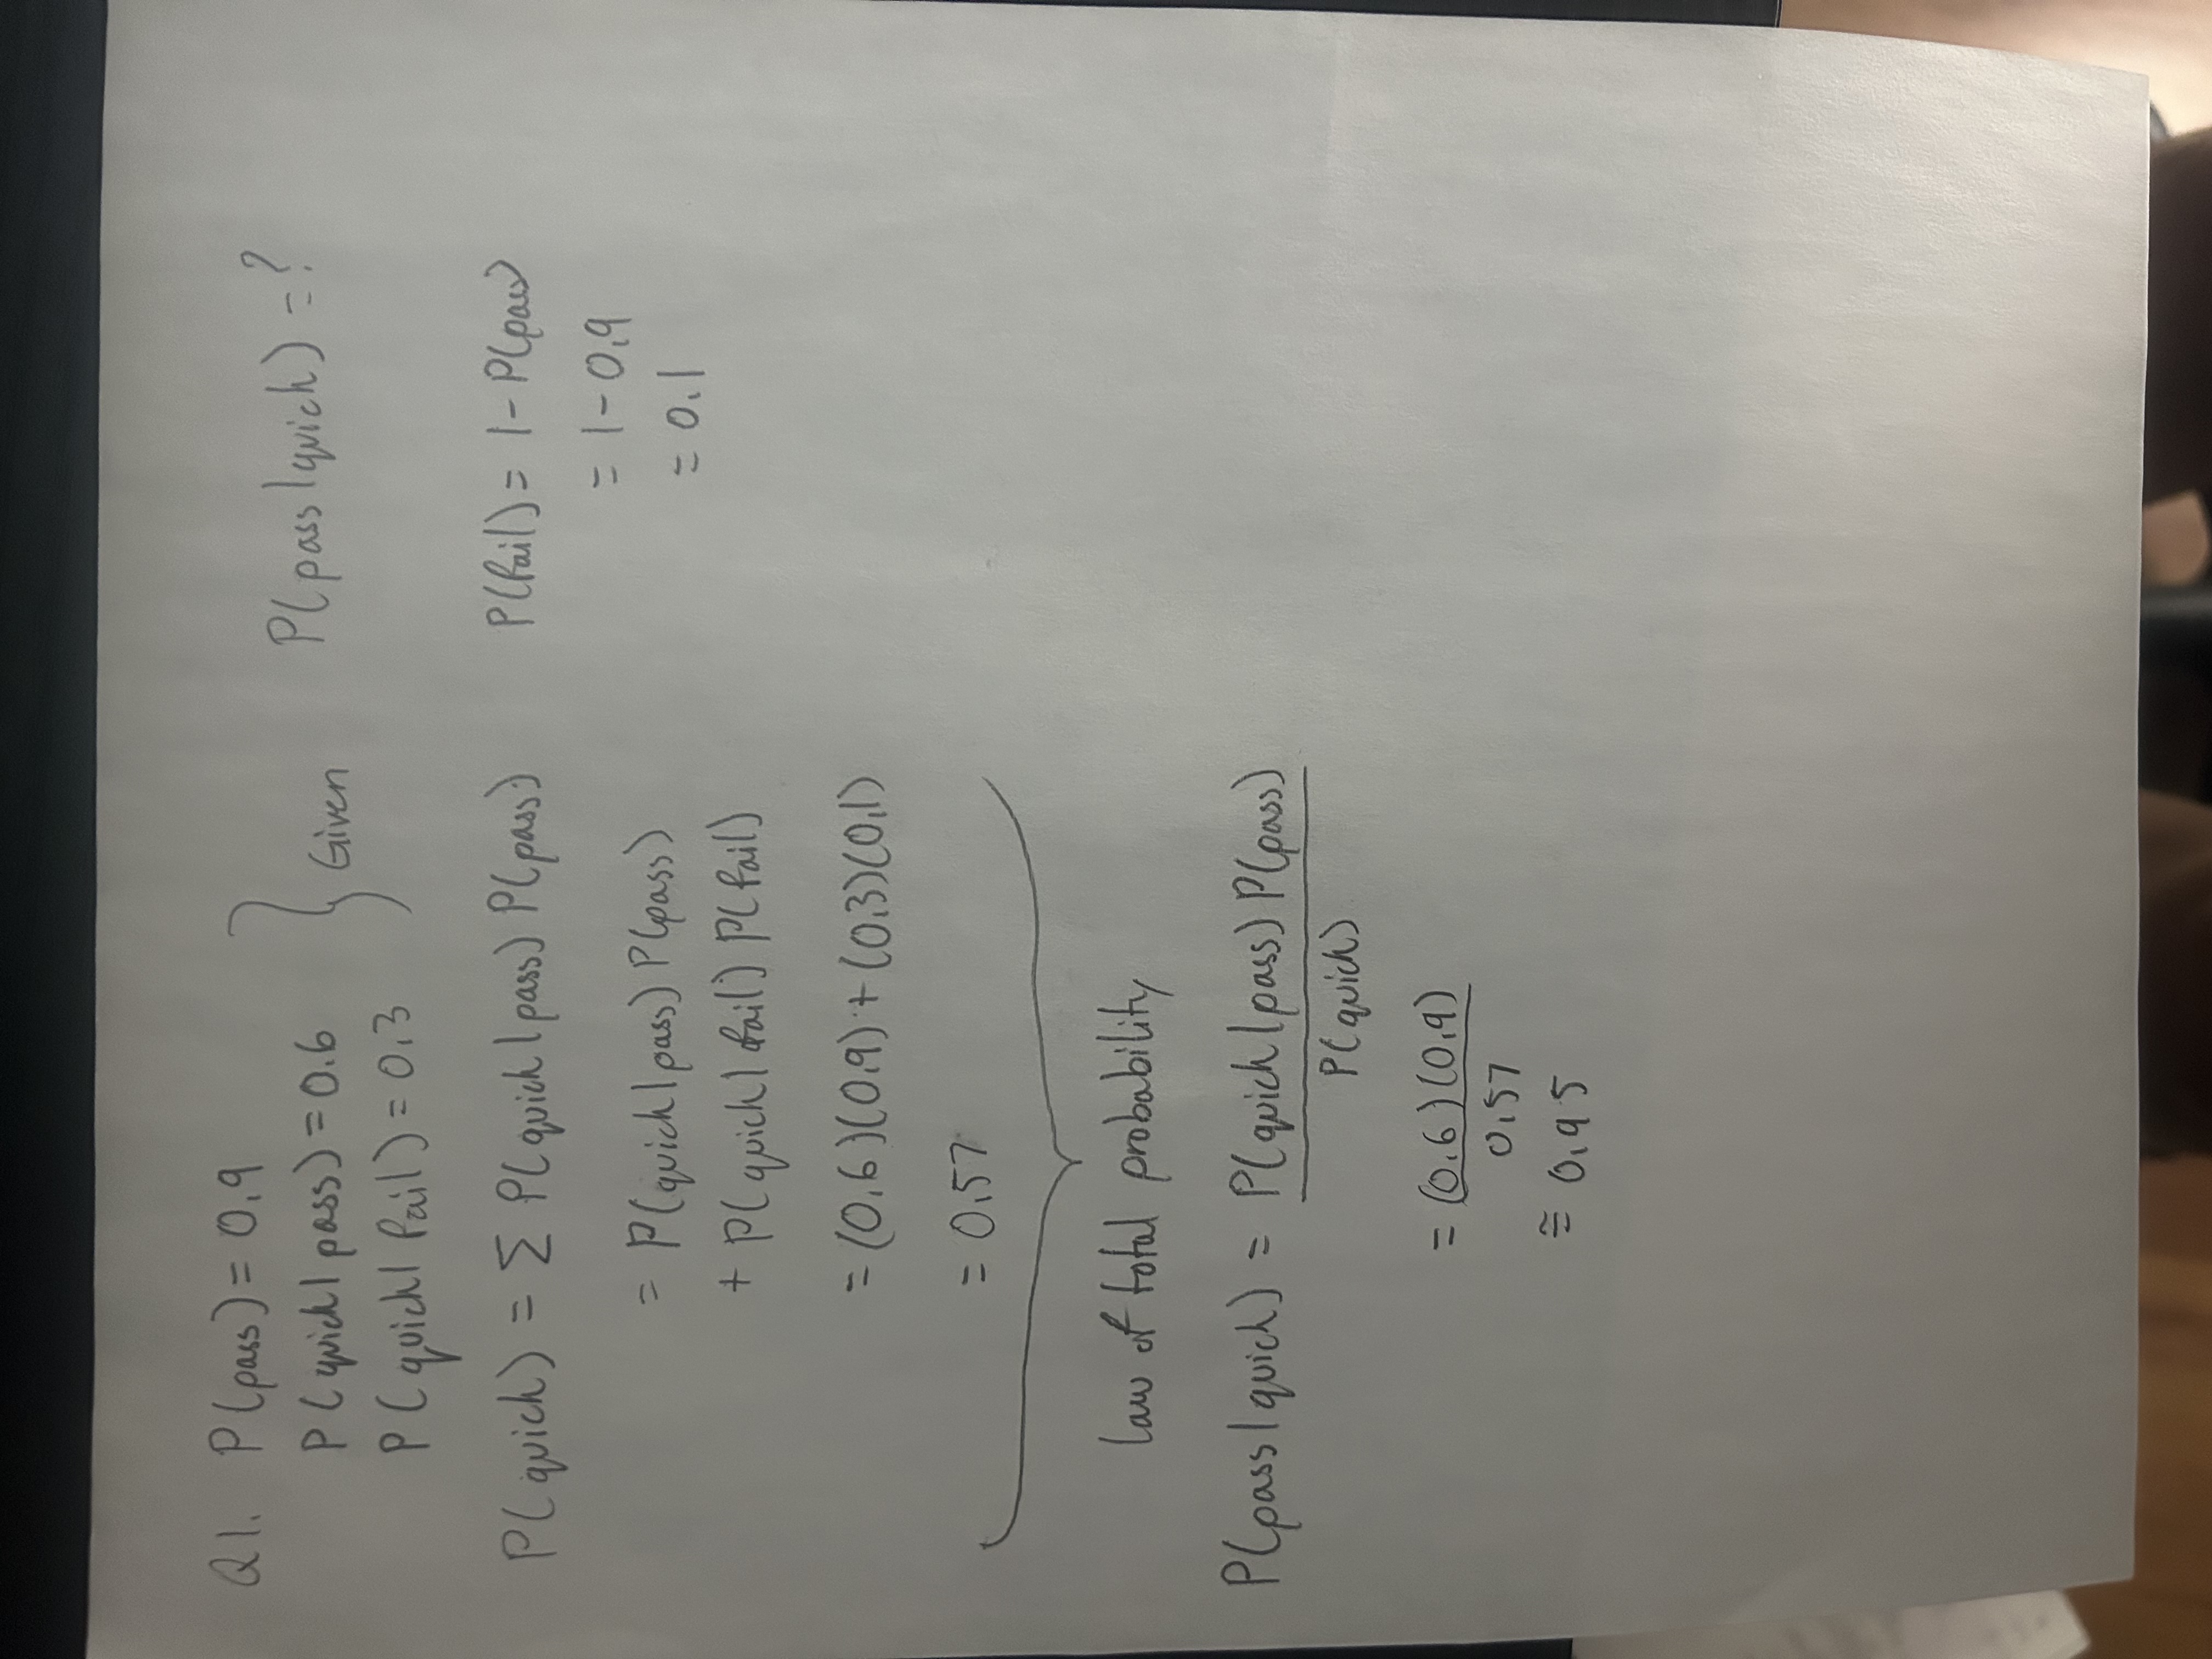 Q1. P(pass) = 0.9
P(quick | pass) = 0.6
P(quick | fail) = 0.3
} Given
P(pass | quick) = ?
P(quick) = Σ P(quick | pass) P(pass)
= P(quick | pass) P(pass)
+ P(quick | fail) P(fail)
= (0.6)(0.9) + (0.3)(0.1)
= 0.57
law of total probability
P(fail) = 1 - P(pass)
= 1 - 0.9
= 0.1
P(pass | quick) = P(quick | pass) P(pass)
P(quick)
= (0.6)(0.9)
0.57
≅ 0.95